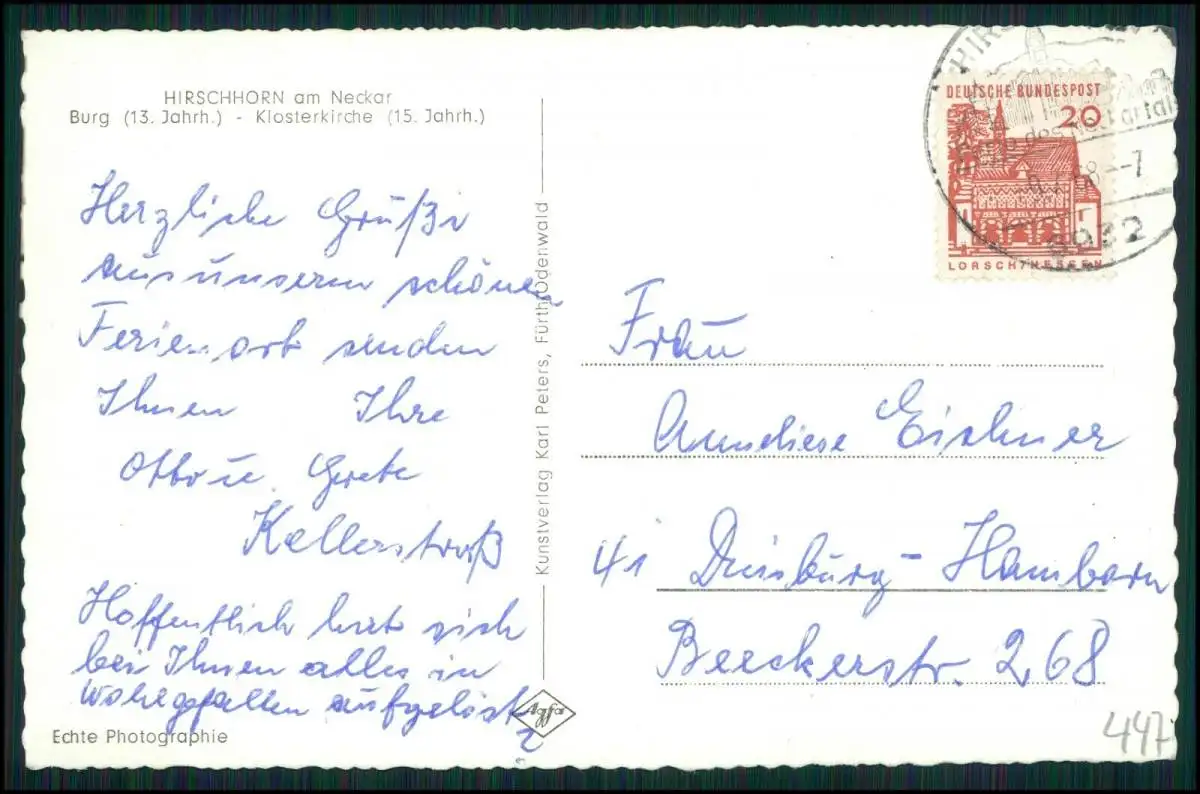 HIRSCHHORN am Neckar
Burg (13. Jahrh.) - Klosterkirche (15. Jahrh.)
Herzliche Grüße
aus unserem schönen
Ferienort senden
Ihnen Ihre
Otto u. Grete
Kellerstraß
Hoffentlich hat sich
bei Ihnen alles in
Wohlgefallen aufgelöst
?
Echte Photographie
Agfa
Kunstverlag Karl Peters, Fürth/Odenwald
DEUTSCHE BUNDESPOST
20
LORSCH/HESSEN
HIRSCH
des Neckartals
68--7
6932
Frau
Anneliese Eichner
41 Duisburg-Hamborn
Beeckerstr. 268
447